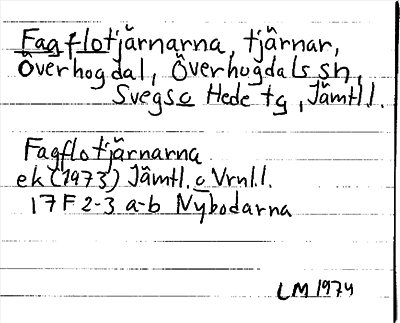 Fagflotjärnarna, tjärnar,
Överhogdal, Överhogdals sn,
Svegs o Hede tg, Jämtl.l.
Fagflotjärnarna
ek (1973) Jämtl. o Vrnl.l.
17F 2-3 a-b Nybodarna
LM 1974